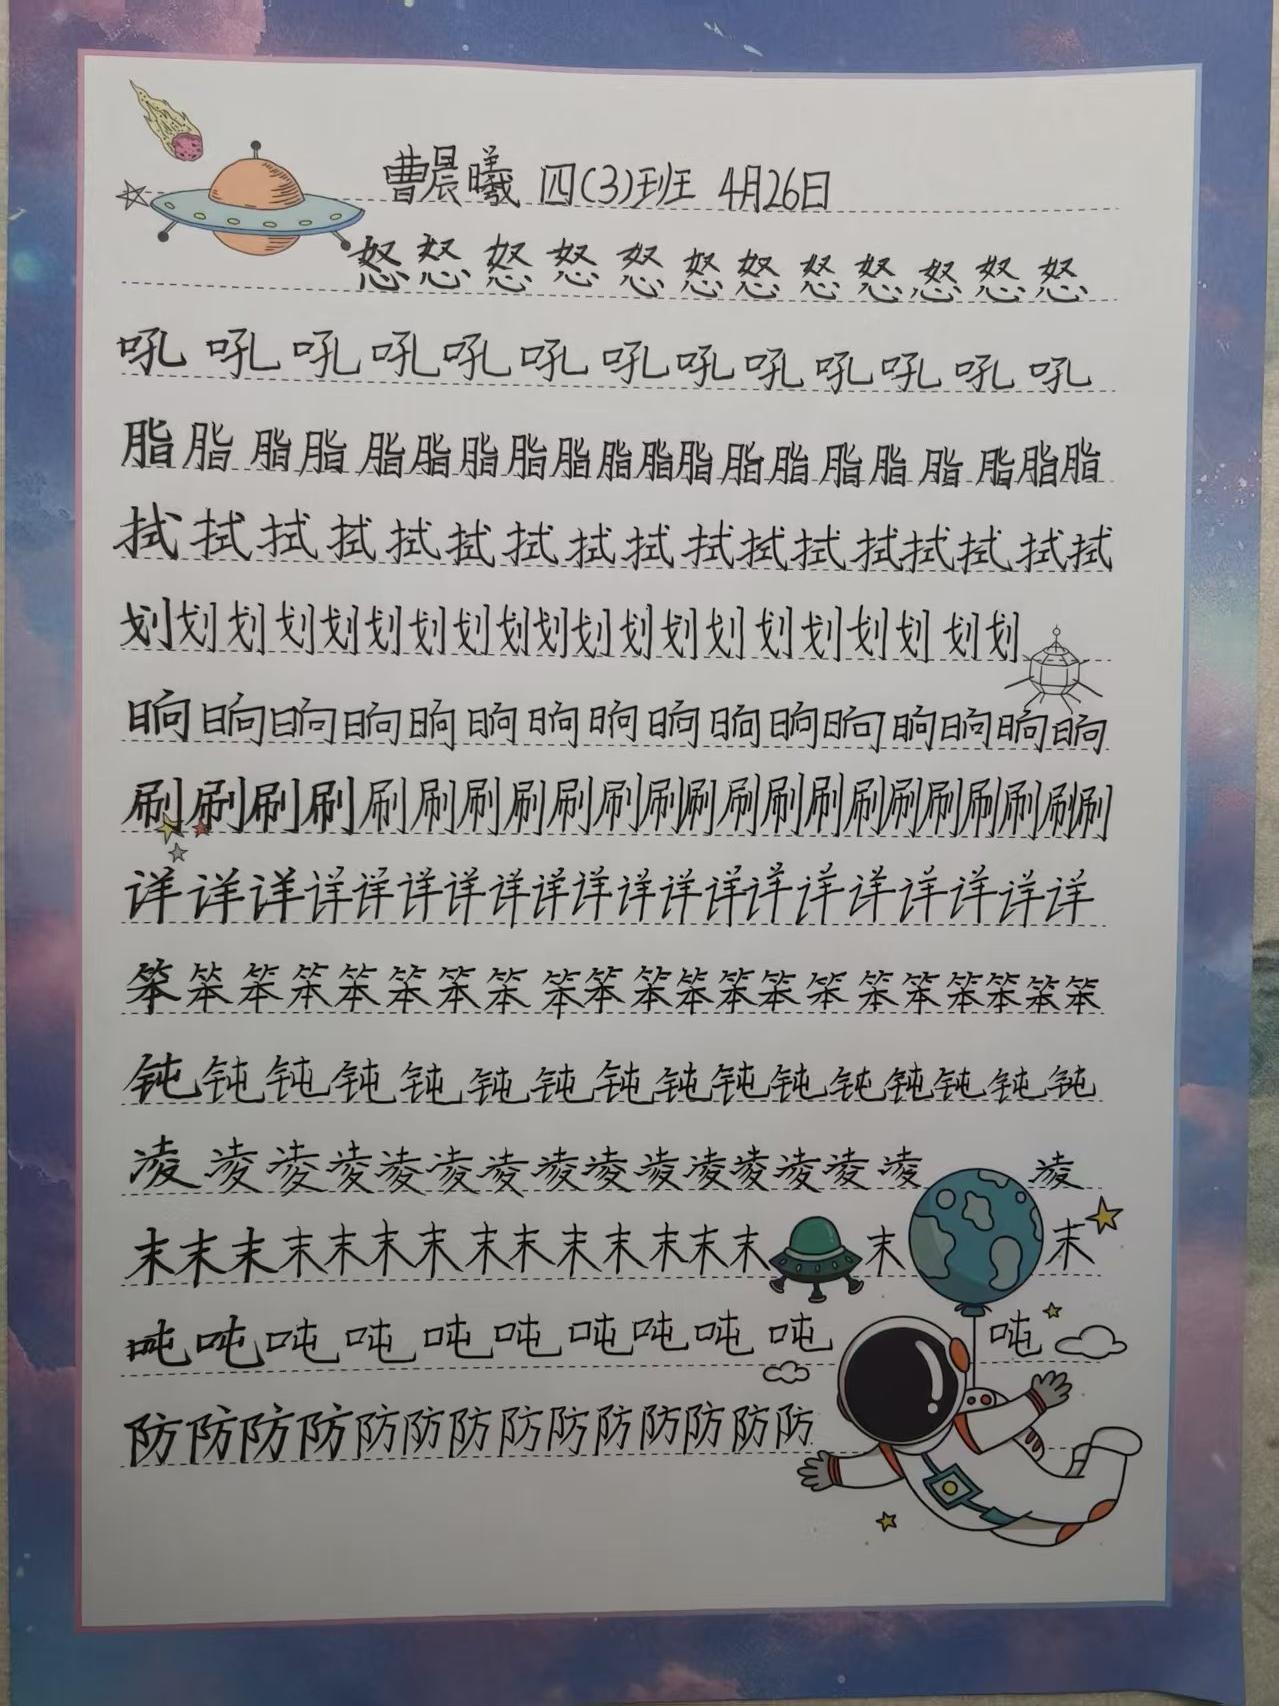 曹晨曦 四(3)班 4月26日
怒怒怒怒怒怒怒怒怒怒怒怒
吼吼吼吼吼吼吼吼吼吼吼吼吼
脂脂脂脂脂脂脂脂脂脂脂脂脂脂脂脂脂脂脂脂
拭拭拭拭拭拭拭拭拭拭拭拭拭拭拭拭拭
划划划划划划划划划划划划划划划划划划划划
晌晌晌晌晌晌晌晌晌晌晌晌晌晌晌晌
刷刷刷刷刷刷刷刷刷刷刷刷刷刷刷刷刷刷刷刷刷刷
详详详详详详详详详详详详详详详详详详详详
笨笨笨笨笨笨笨笨笨笨笨笨笨笨笨笨笨笨笨笨笨
钝钝钝钝钝钝钝钝钝钝钝钝钝钝钝钝
凌凌凌凌凌凌凌凌凌凌凌凌凌凌凌凌
末末末末末末末末末末末末末末末末
吨吨吨吨吨吨吨吨吨吨吨
防防防防防防防防防防防防防防